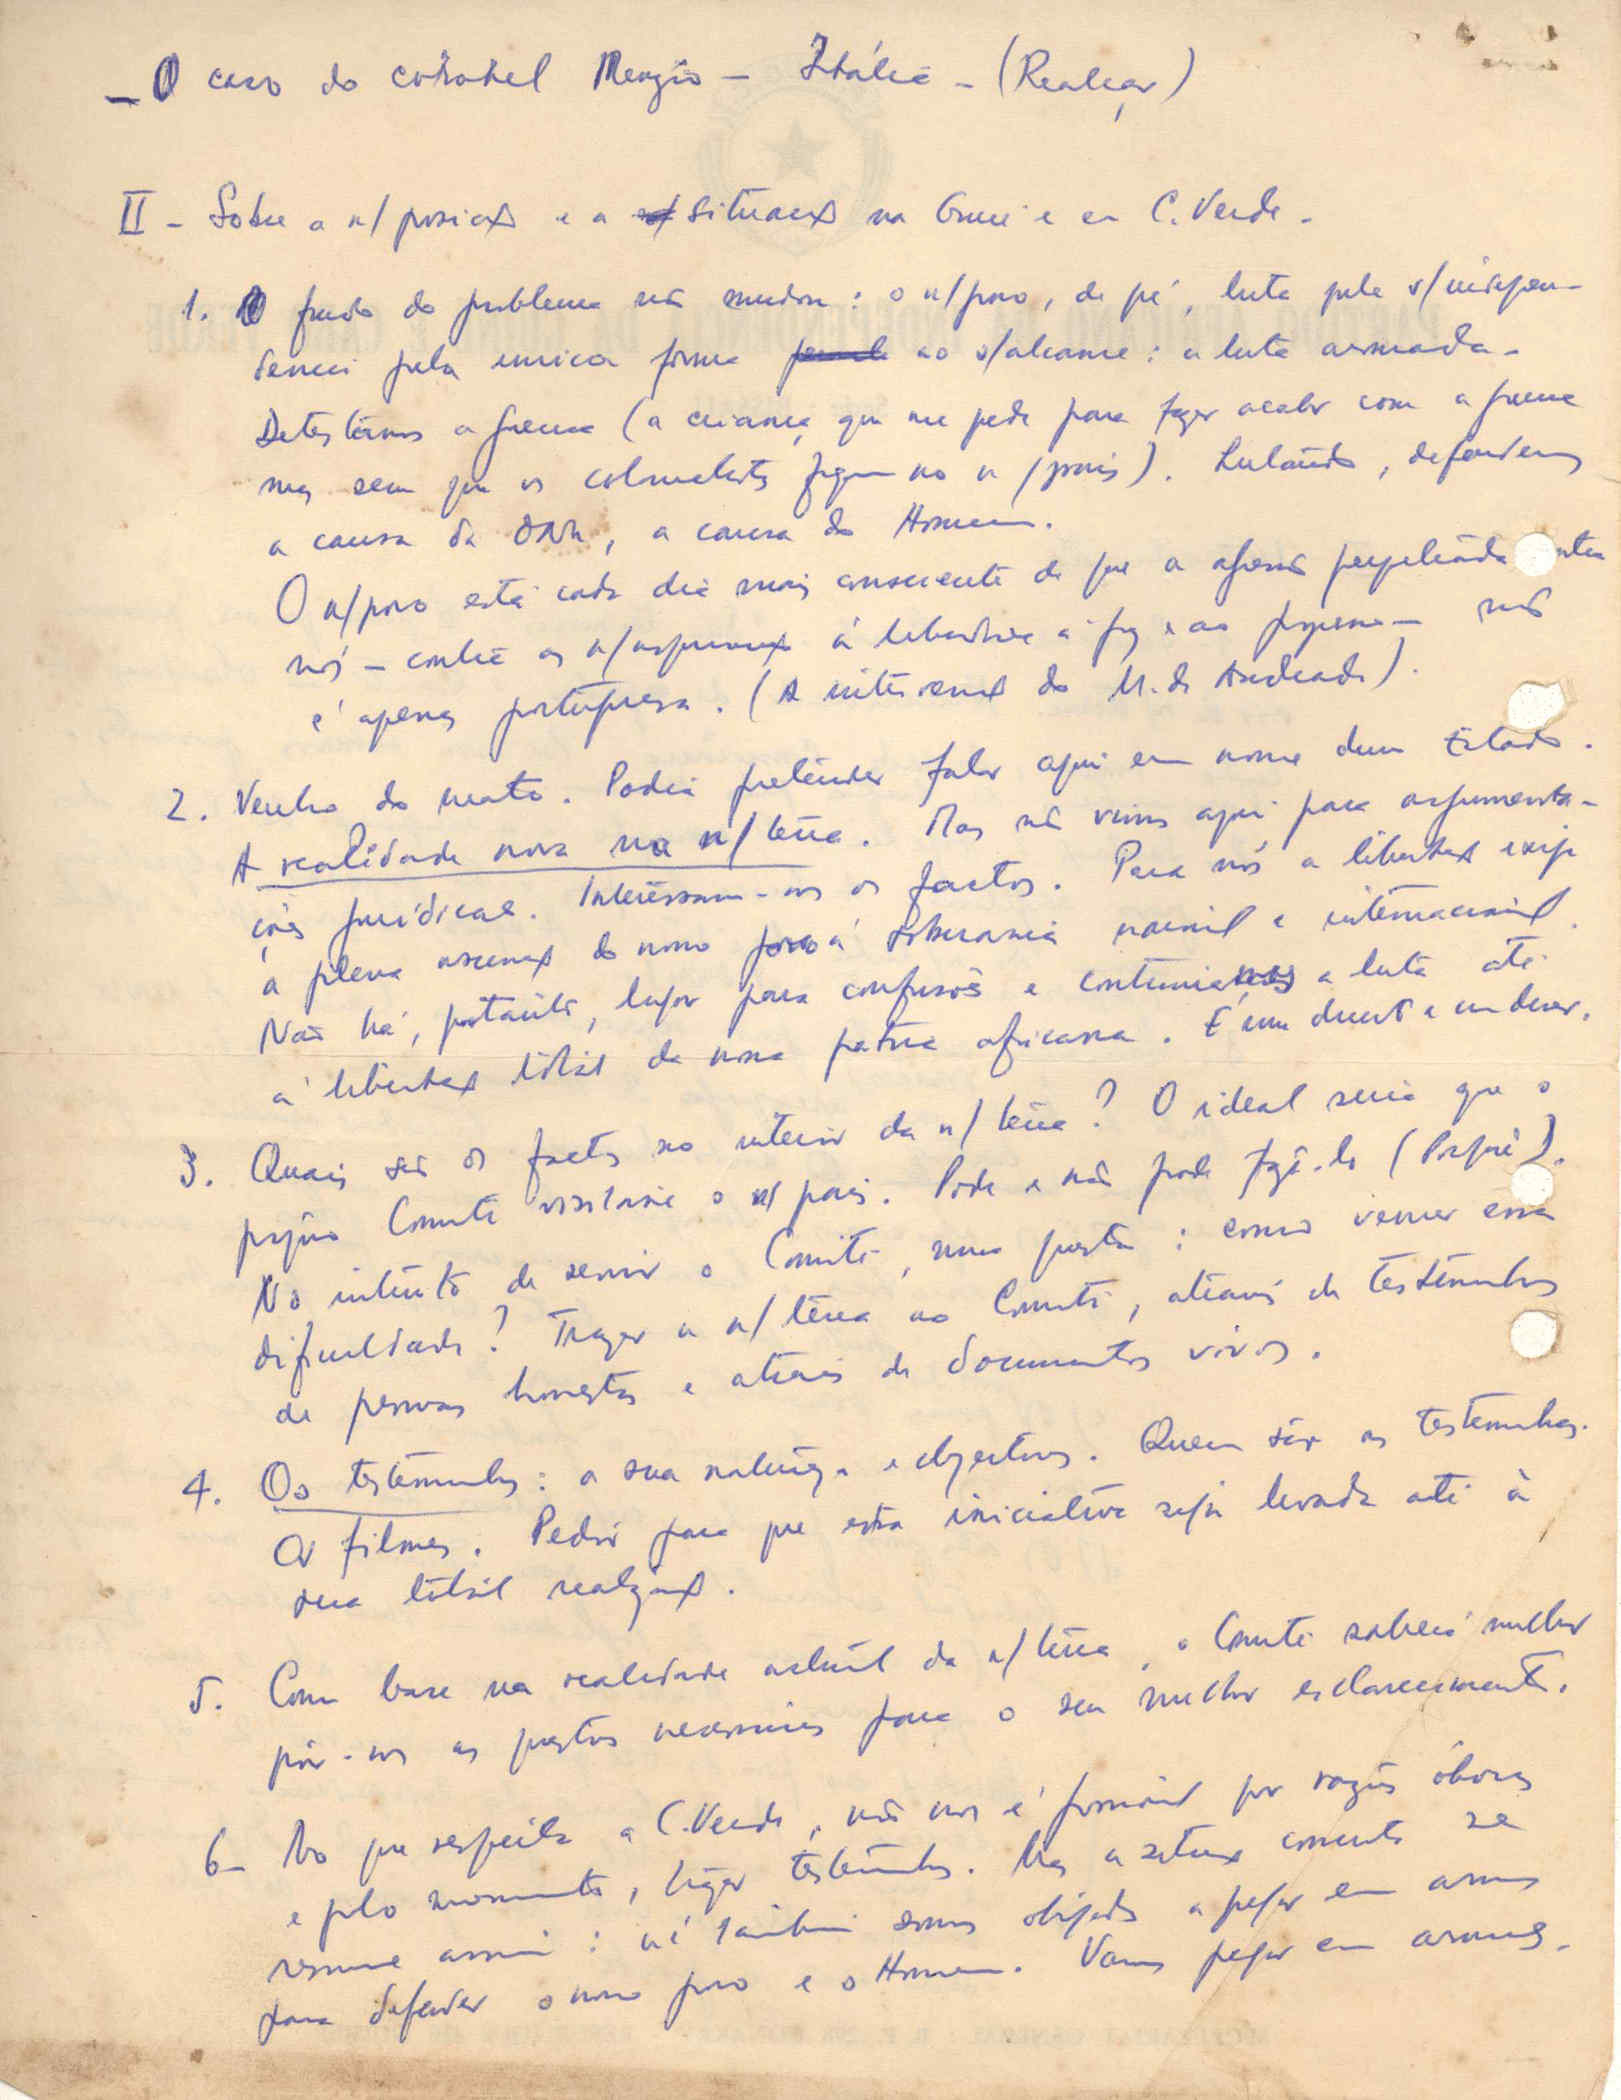 – O caso do coronel – Itália – (Realçar)
II – Sobre a n/ posição e a situação na Guiné e em C. Verde.
1. O fundo do problema não mudou: o n/povo, de pé, luta pela s/indepen-
dencia pela unica forma ao s/alcance: a luta armada.
Detestamos a guerra (a criança que me pede para fazer acabar com a guerra
mas sem que os colonialistas fiquem no n/ pais). Lutando, defendemos
a causa da ONU, a causa do Homem.
O n/povo está cada dia mais consciente de que a agressão perpetrada contra
nós – contra as n/aspirações à liberdade à paz e ao progresso – não
é apenas portuguesa. (A intervenção do M. de Andrade).
2. Venho do mato. Podia pretender falar aqui em nome dum Estado.
A realidade nova na n/ terra. Mas não vimos aqui para argumenta-
ções jurídicas. Interessam-nos os factos. Para nós a libertação exige
a plena ascensão do nosso povo à soberania nacional e internacional.
Não há, portanto, lugar para confusões e continuamos a luta até
à libertação total da nossa patria africana. É um direito e um dever.
3. Quais são os factos no interior da n/ terra? O ideal seria que o
próprio Comité visitasse o n/ pais. Pode e não pode fazê-lo (Porquê).
No intuito de servir o Comité, uma questão: como vencer essa
dificuldade? Trazer a n/ terra ao Comité, através de testemunhos
de pessoas honestas e através de documentos vivos.
4. Os testemunhos: a sua natureza e objectivos. Quem são as testemunhas.
Os filmes. Pedir para que esta iniciativa seja levada até à
sua total realização.
5. Com base na realidade actual da n/ terra, o Comité saberá melhor
pôr-nos as questões necessárias para o seu melhor esclarecimento.
6– No que respeita a C. Verde, não nos é possivel por razões óbvias
e pelo momento, trazer testemunhos. Mas a situação concreta se
resume assim: aí também somos obrigados a pegar em armas
para defender o nosso povo e o Homem. Vamos pegar em armas.